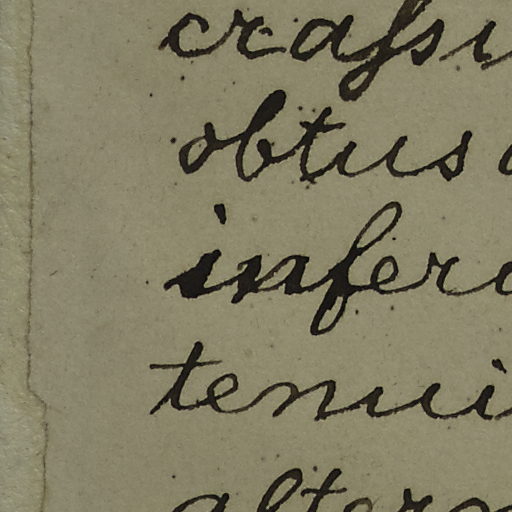 craſsi
obtus
infer
tenui
altern